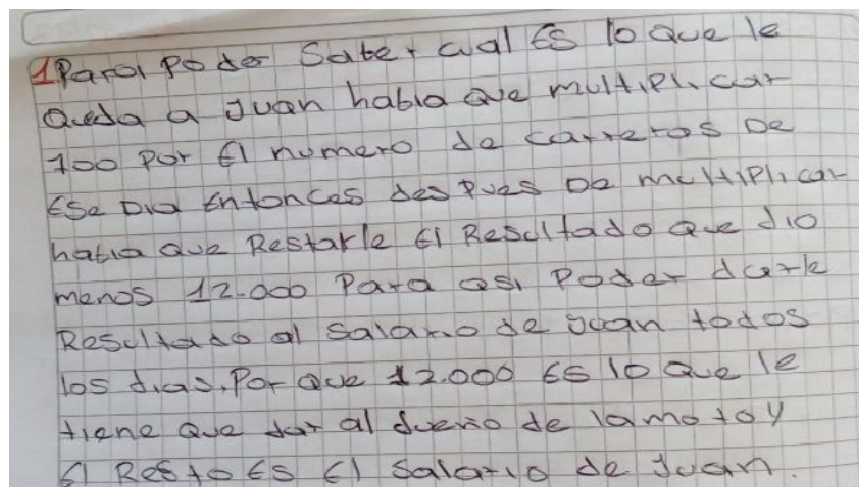 1 Para Poder Saber cual Es lo que le
Queda a Juan habia Que multiplicar
700 Por El numero de carreros De
Ese Dia Entonces des Pues De multiplicar
habia que Restarle El Resultado que dio
menos 12.000 Para asi Poder darle
Resultado al Salario de Juan todos
los dias, Por Que 12.000 Es lo que le
tiene Que dar al dueño de la moto y
El Resto Es El Salario de Juan.